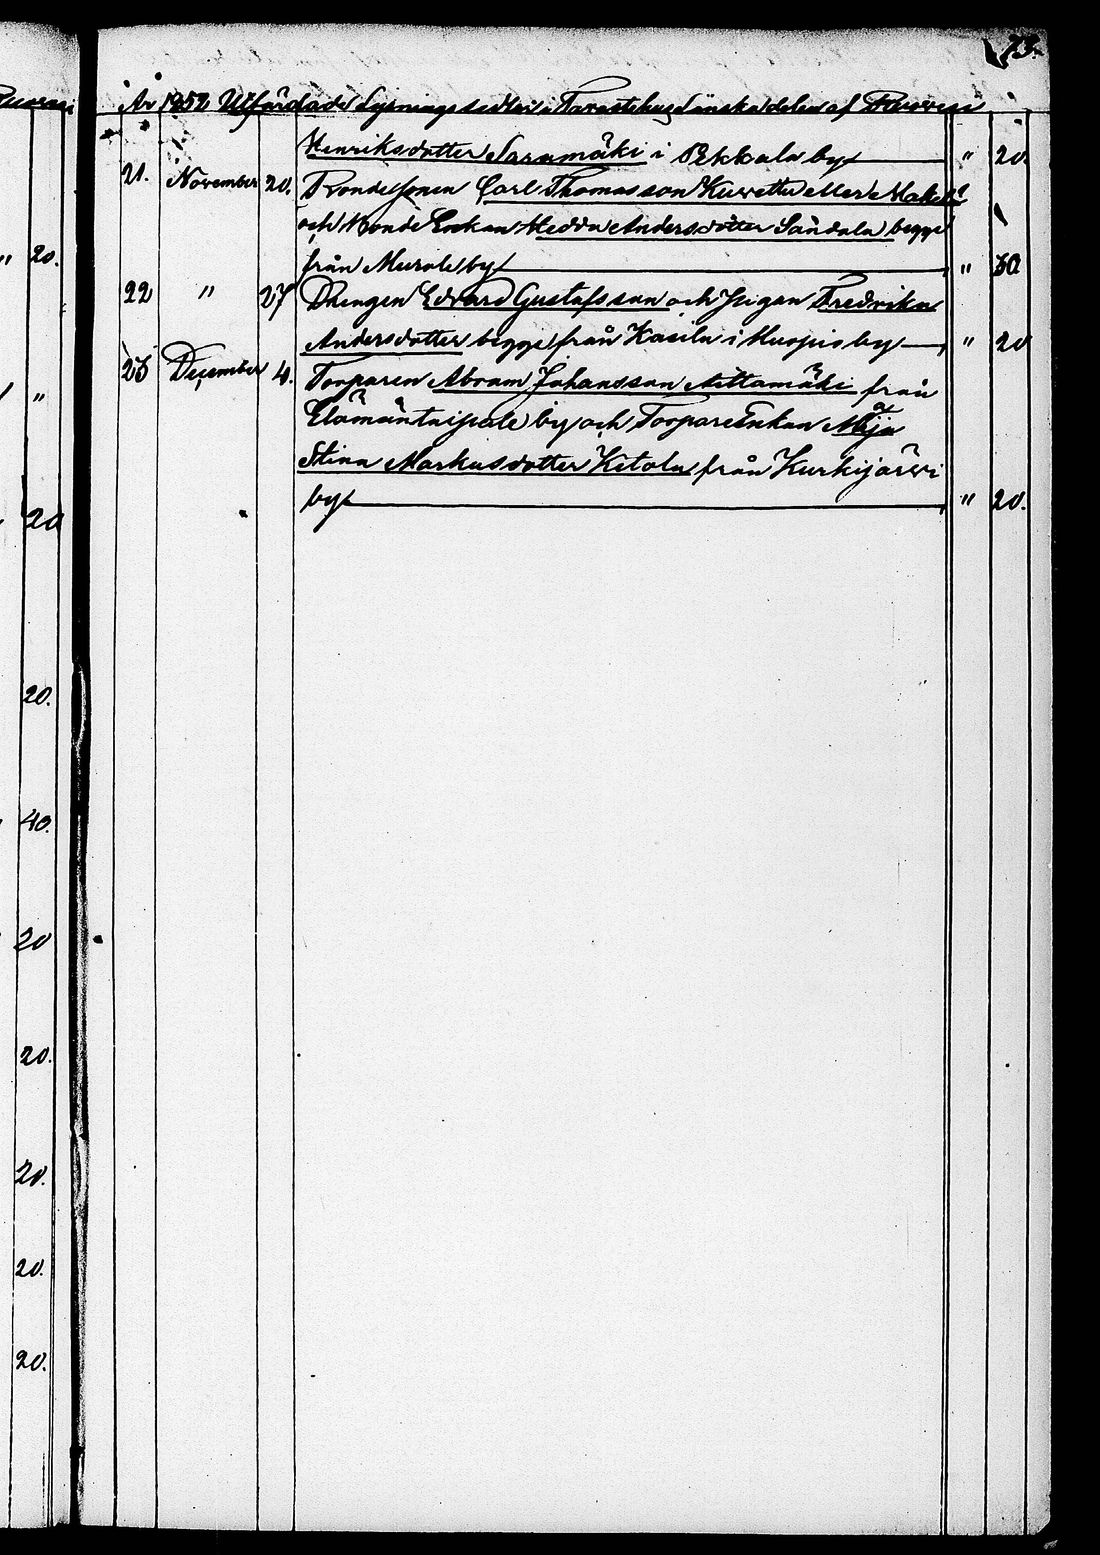 73.
År 1852 Utfärdade Lysningssedlar i Tavastehus Länska delen af Ruovesi
Henriksdotter Saramäki i Pekkala by " 20.
21. November 20. Bondesonen Carl Thomasson Kuwetta eller Makela
och Bonde Enkan Hedda Andersdotter Sandala begge
från Murole by " 30
22 " 27 Drengen Edvard Gustafsson och Pigan Fredrika
Andersdotter begge från Kasila i Muspis by " 20
23 December 4. Torparen Abram Johansson Aittamäki från
Elämäntaipale by och Torpare Enkan Maja
Stina Markusdotter Ketola från Kurkijärwi
by " 20.
" 20.
"
20
20.
40.
20
20.
20.
20.
20.